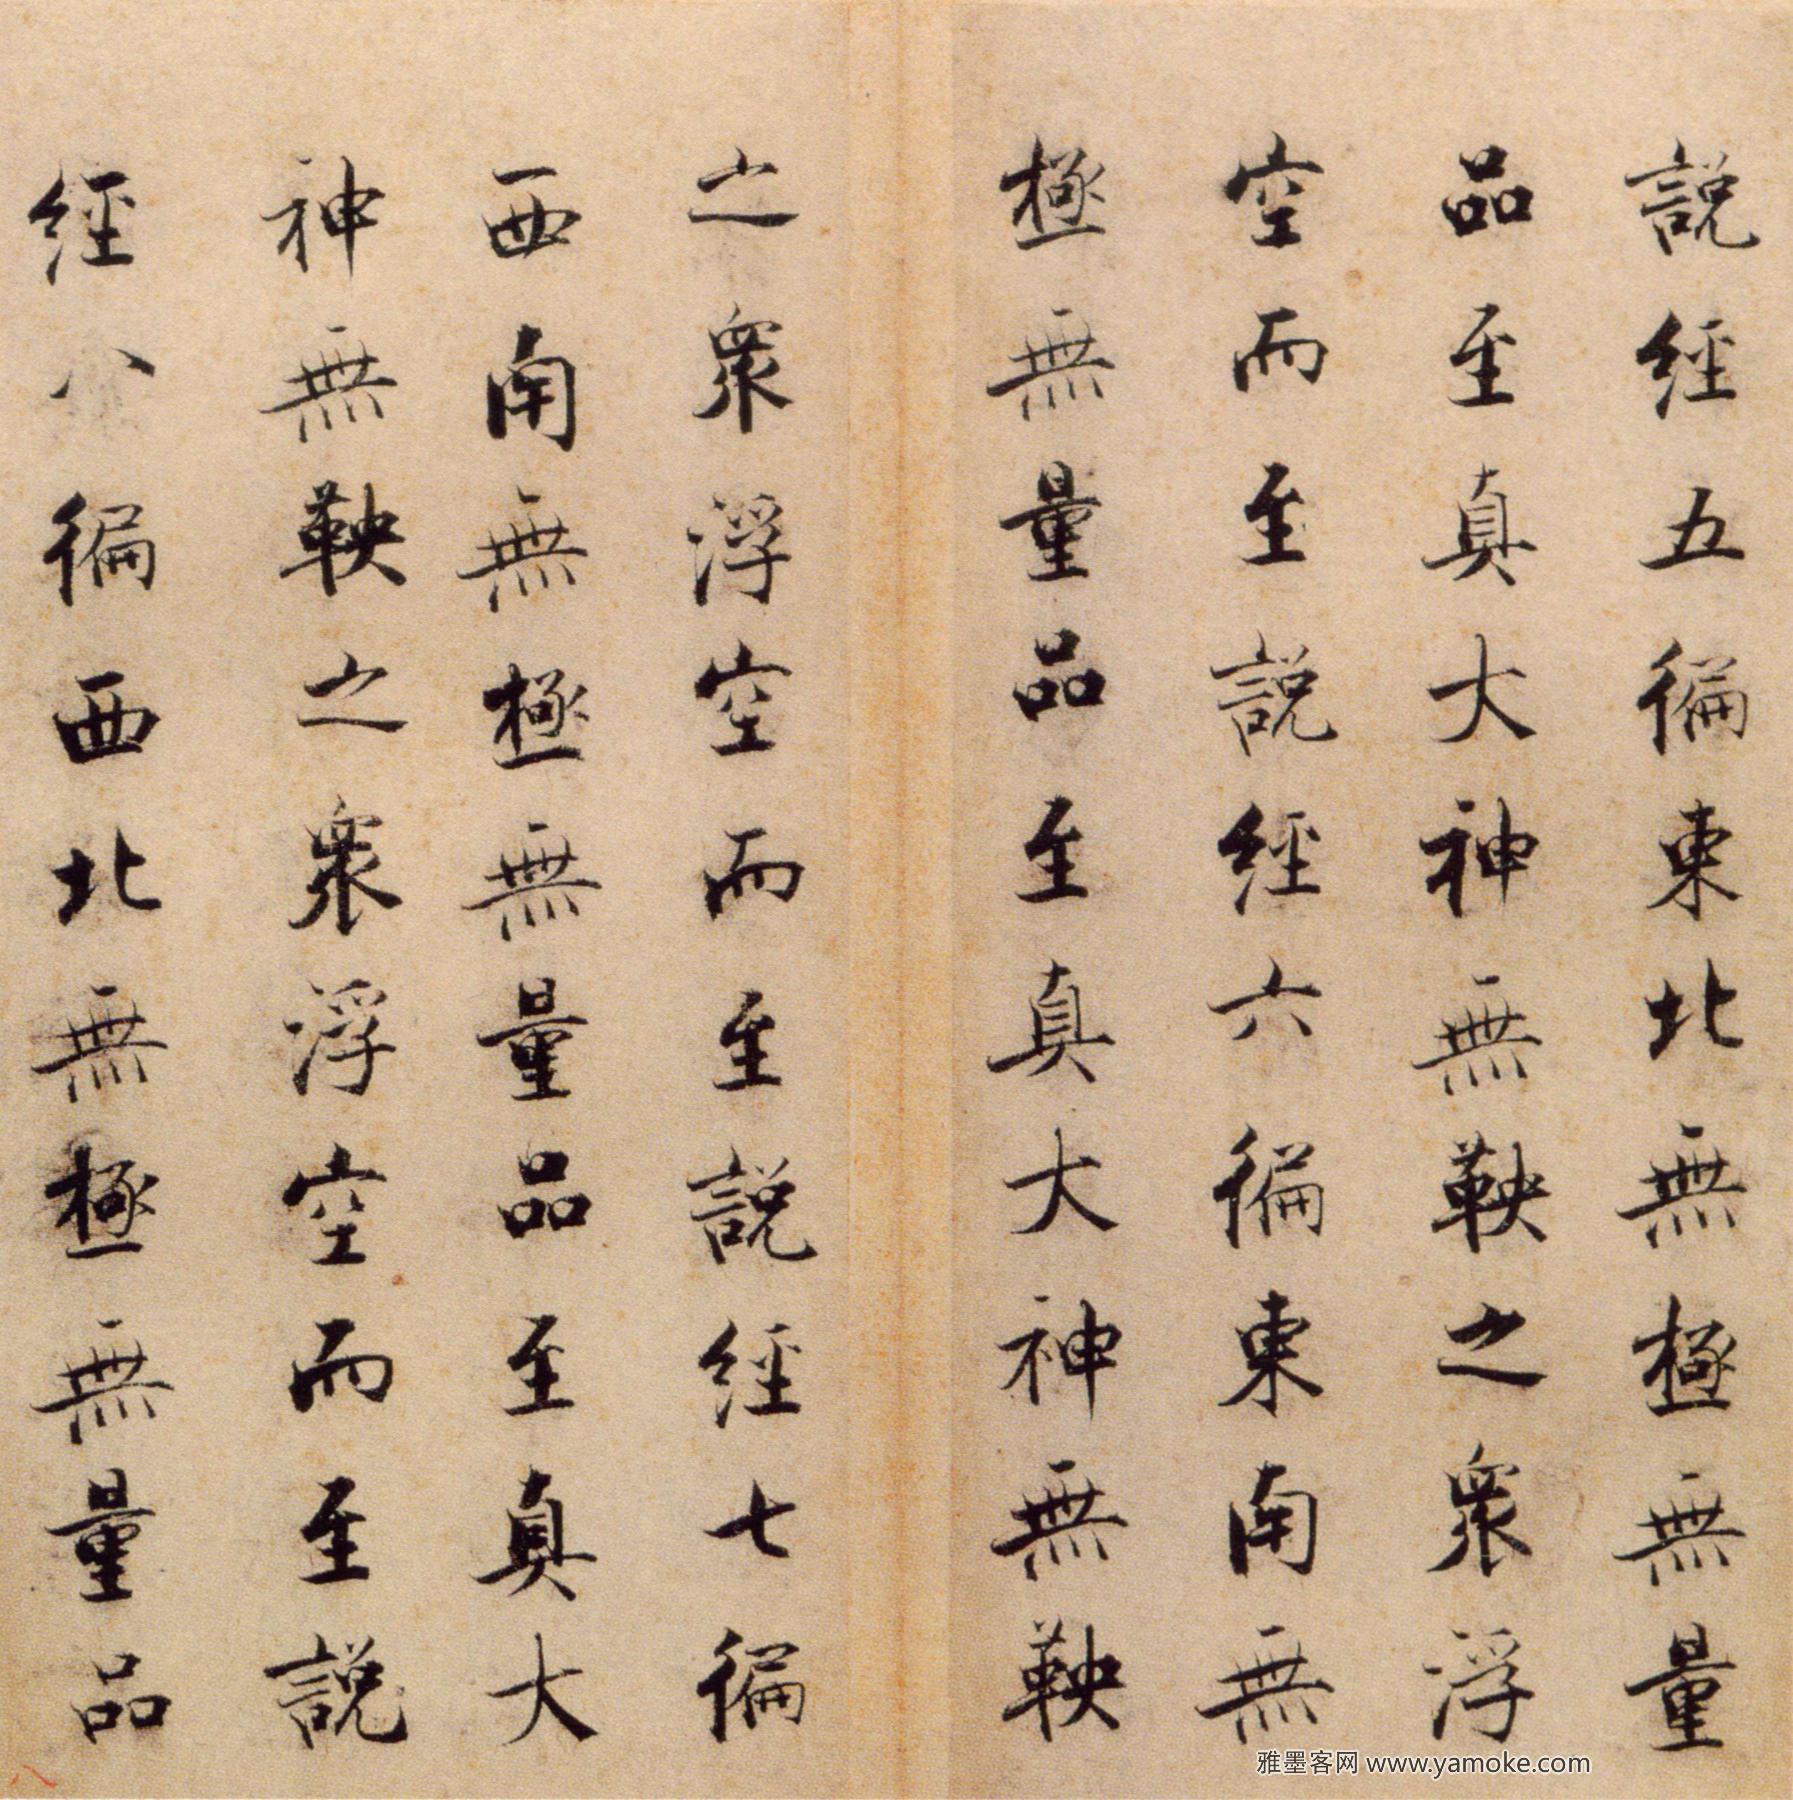 説經五徧東北無極無量
品至真大神無鞅之衆浮
空而至説經六徧東南無
極無量品至真大神無鞅
之衆浮空而至説經七徧
西南無極無量品至真大
神無鞅之衆浮空而至説
經八徧西北無極無量品
八
雅墨客网 www.yamoke.com